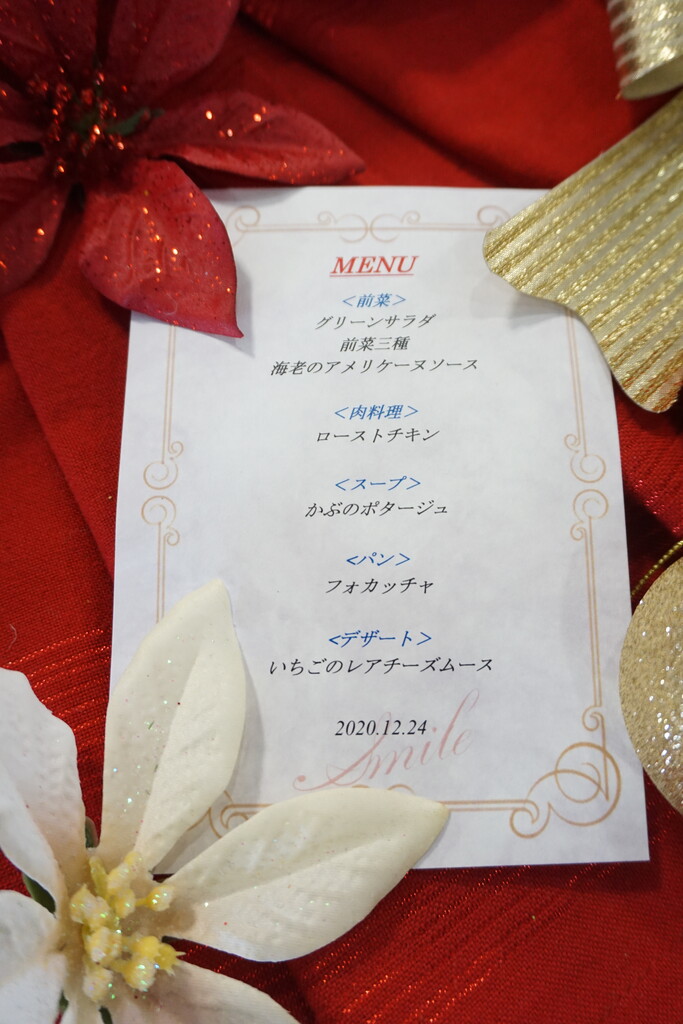 MENU
<前菜>
グリーンサラダ
前菜三種
海老のアメリケーヌソース
<肉料理>
ローストチキン
<スープ>
かぶのポタージュ
<パン>
フォカッチャ
<デザート>
いちごのレアチーズムース
2020.12.24
Smile